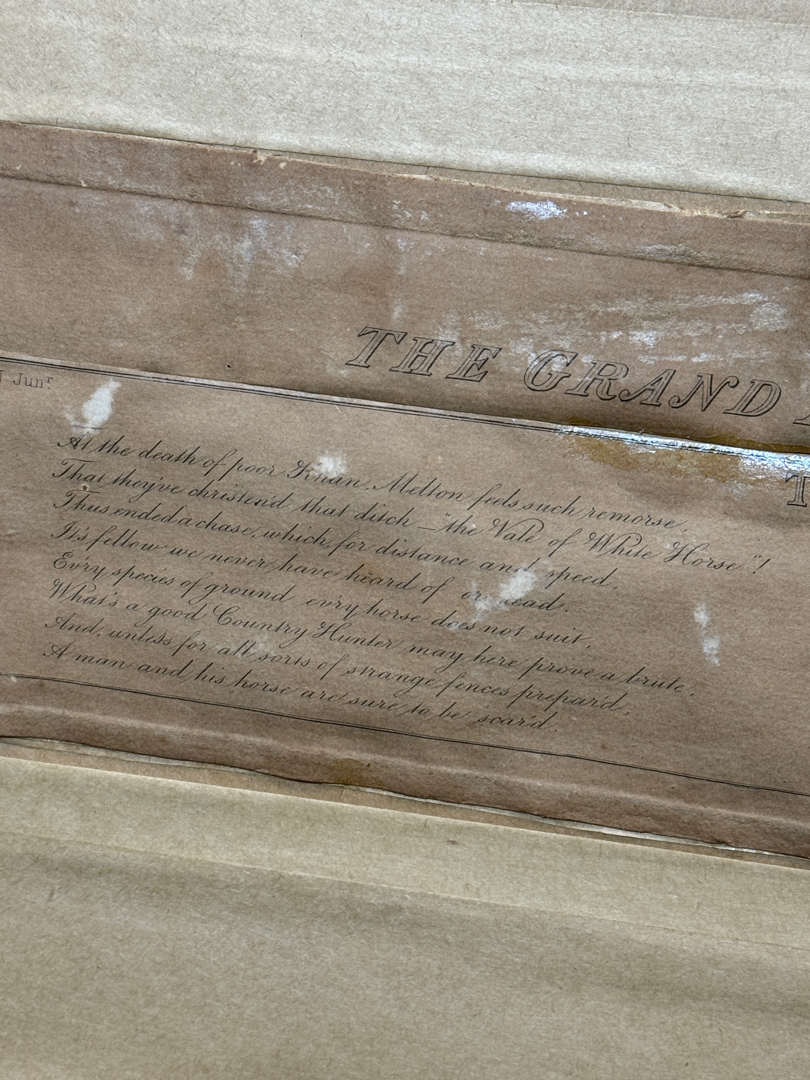 THE GRAND
Junʳ
T
At the death of poor Khan, Melton feels such remorse,
That they've christend that ditch – "the Vale of White Horse"!
Thus ended a chase, which for distance and speed,
It's fellow we never have heard of or read.
Ev'ry species of ground ev'ry horse does not suit,
What's a good Country Hunter may here prove a brute;
And, unless for all sorts of strange fences prepar'd,
A man and his horse are sure to be scar'd.